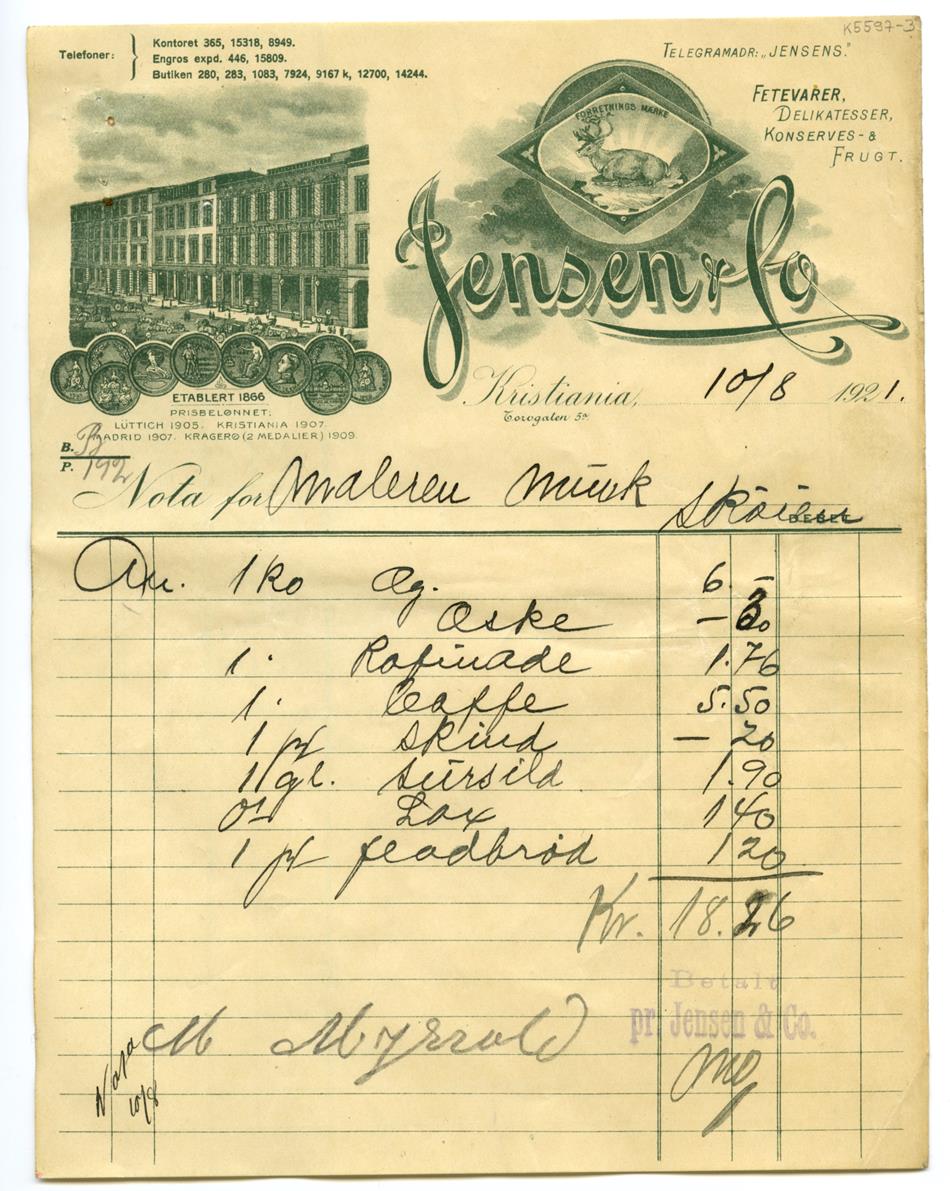 K5597-3
Telefoner: Kontoret 365, 15318, 8949.
Engros expd. 446, 15809.
Butiken 280, 283, 1083, 7924, 9167 k, 12700, 14244.
TELEGRAMADR: „JENSENS."
FETEVARER,
DELIKATESSER,
KONSERVES- &
FRUGT.
FORRETNINGS MÆRKE
Jensen & Co
ETABLERT 1866
PRISBELØNNET:
LÜTTICH 1905. KRISTIANIA 1907.
MADRID 1907. KRAGERØ (2 MEDALIER) 1909.
Kristiania, 10/8 1921.
Torvgaten 5a
B.
P. 192
Nota for Maleren Münk Skøien
DEBET
An. 1 ko Æg. 6. –
Æske – 30
1. Rafinade 1.76
1. Caffe 5.50
1 pk Skind – 20
1 gl. Sürsild 1.90
Lax 140
1 pk fladbrød 120
Kr. 18.26
Betalt
pr. Jensen & Co.
M Myrvold
10/8